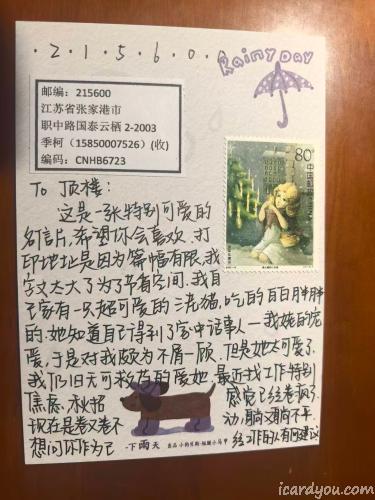 · 2 · 1 · 5 · 6 · 0 · 0
Rainy Day
邮编：215600
江苏省张家港市
职中路国泰云栖 2-2003
季柯（15850007526）(收)
编码：CNHB6723
80分
中国邮政
To 顶楼：
这是一张特别可爱的
名信片，希望你会喜欢，打
印地址是因为篇幅有限，我
字又太大了为了节省空间。我自
己家有一只超可爱的三花猫，吃的白白胖胖
的。她知道自己得到了家中话事人——我姥的宠
爱，于是对我颇为不屑一顾，但是她太可爱了，
我仍旧无可救药的爱她。最近找工作特别
焦虑，秋招 感觉已经卷疯了，
现在是卷又卷不动，躺又躺不平。
想问问你作为已经工作的人有何建议
下雨天
出品 小钩贝斯·短腿小马甲
icardyou.com